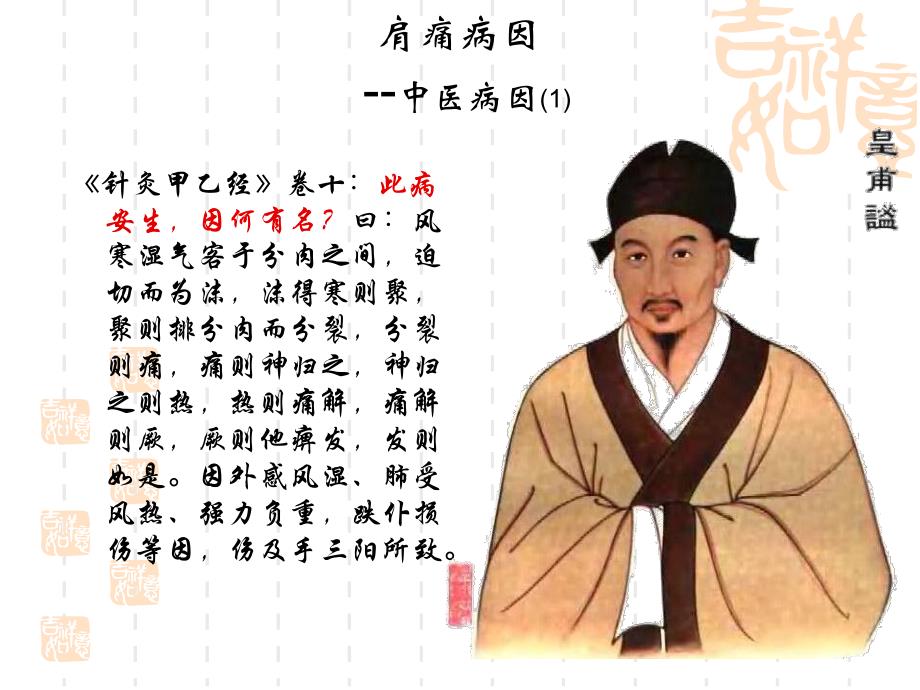 肩痛病因
--中医病因(1)
《针灸甲乙经》卷十：此病
安生，因何有名？曰：风
寒湿气客于分肉之间，迫
切而为沫，沫得寒则聚，
聚则排分肉而分裂，分裂
则痛，痛则神归之，神归
之则热，热则痛解，痛解
则厥，厥则他痹发，发则
如是。因外感风湿、肺受
风热、强力负重，跌仆损
伤等因，伤及手三阳所致。
皇甫謐
吉祥如意
吉祥如意
吉祥如意
吉祥如意
吉祥如意
吉祥如意
吉祥如意